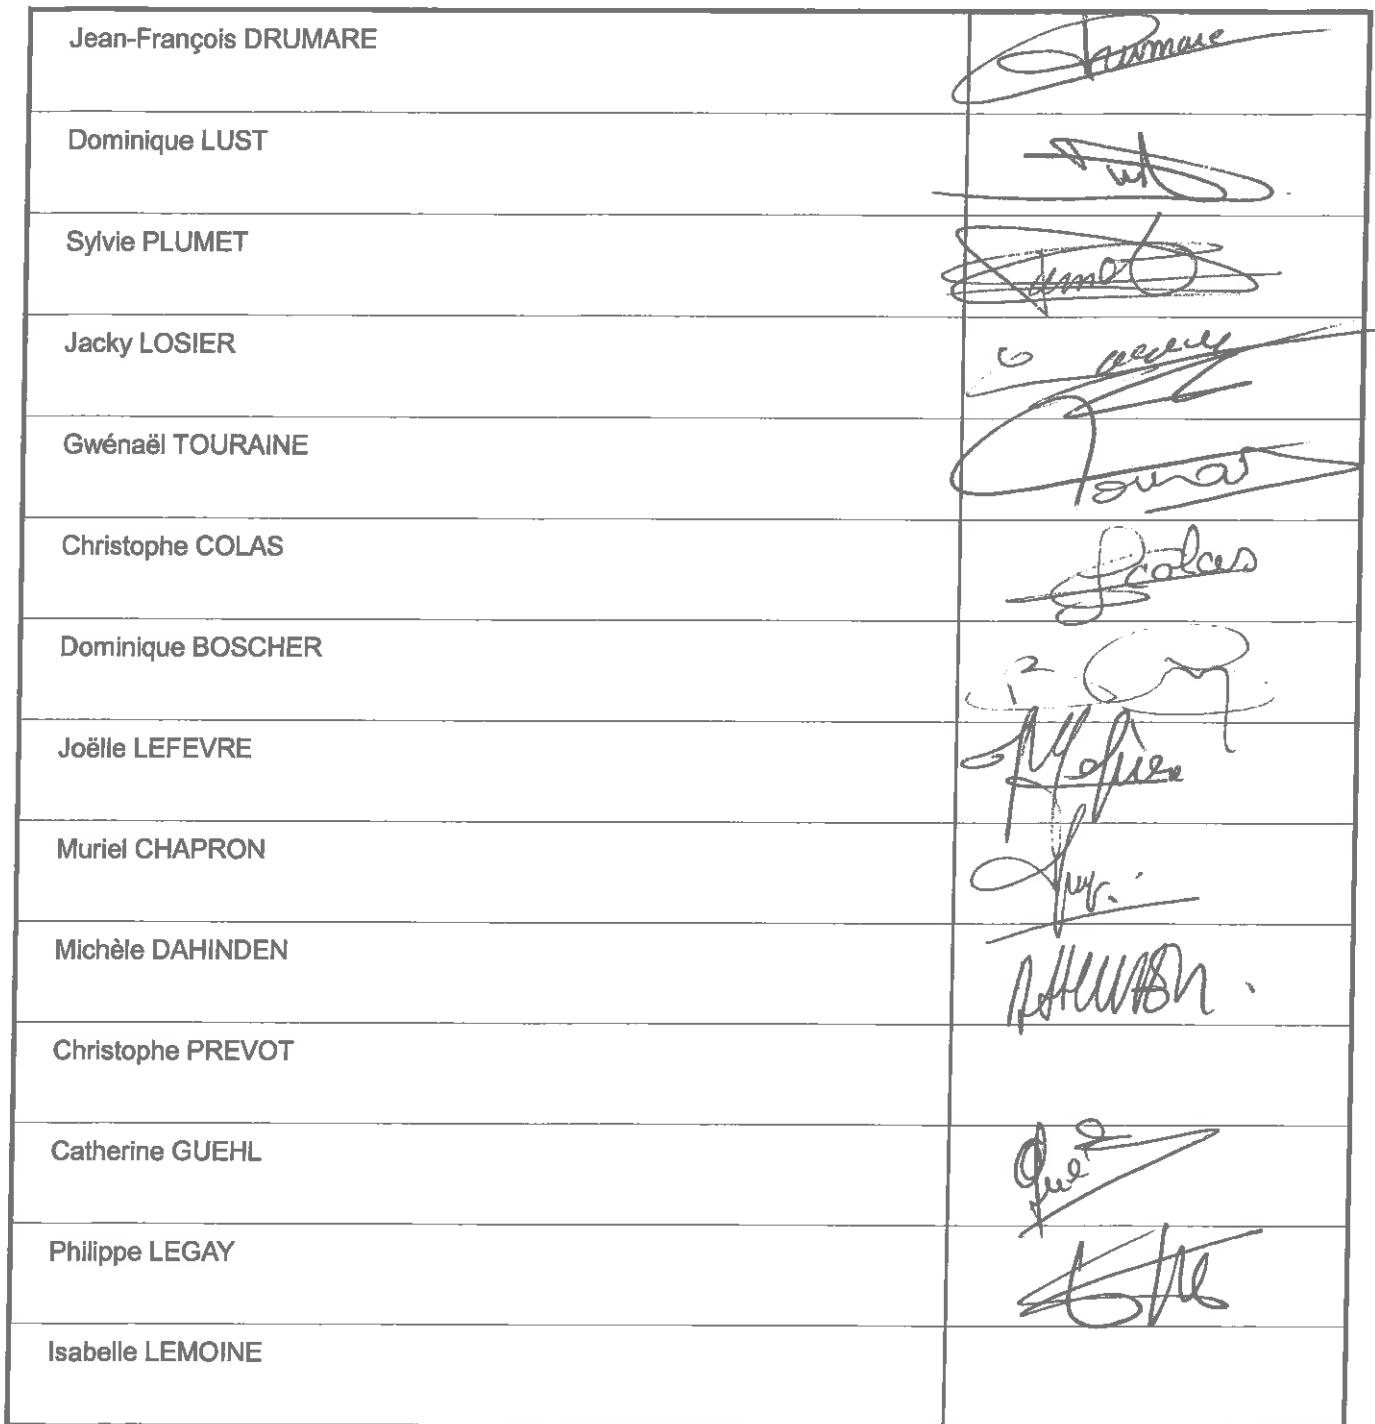 Jean-François DRUMARE
Drumare
Dominique LUST
Sylvie PLUMET
Jacky LOSIER
Gwénaël TOURAINE
Christophe COLAS
colas
Dominique BOSCHER
Joëlle LEFEVRE
Muriel CHAPRON
Michèle DAHINDEN
Christophe PREVOT
Catherine GUEHL
Philippe LEGAY
Isabelle LEMOINE